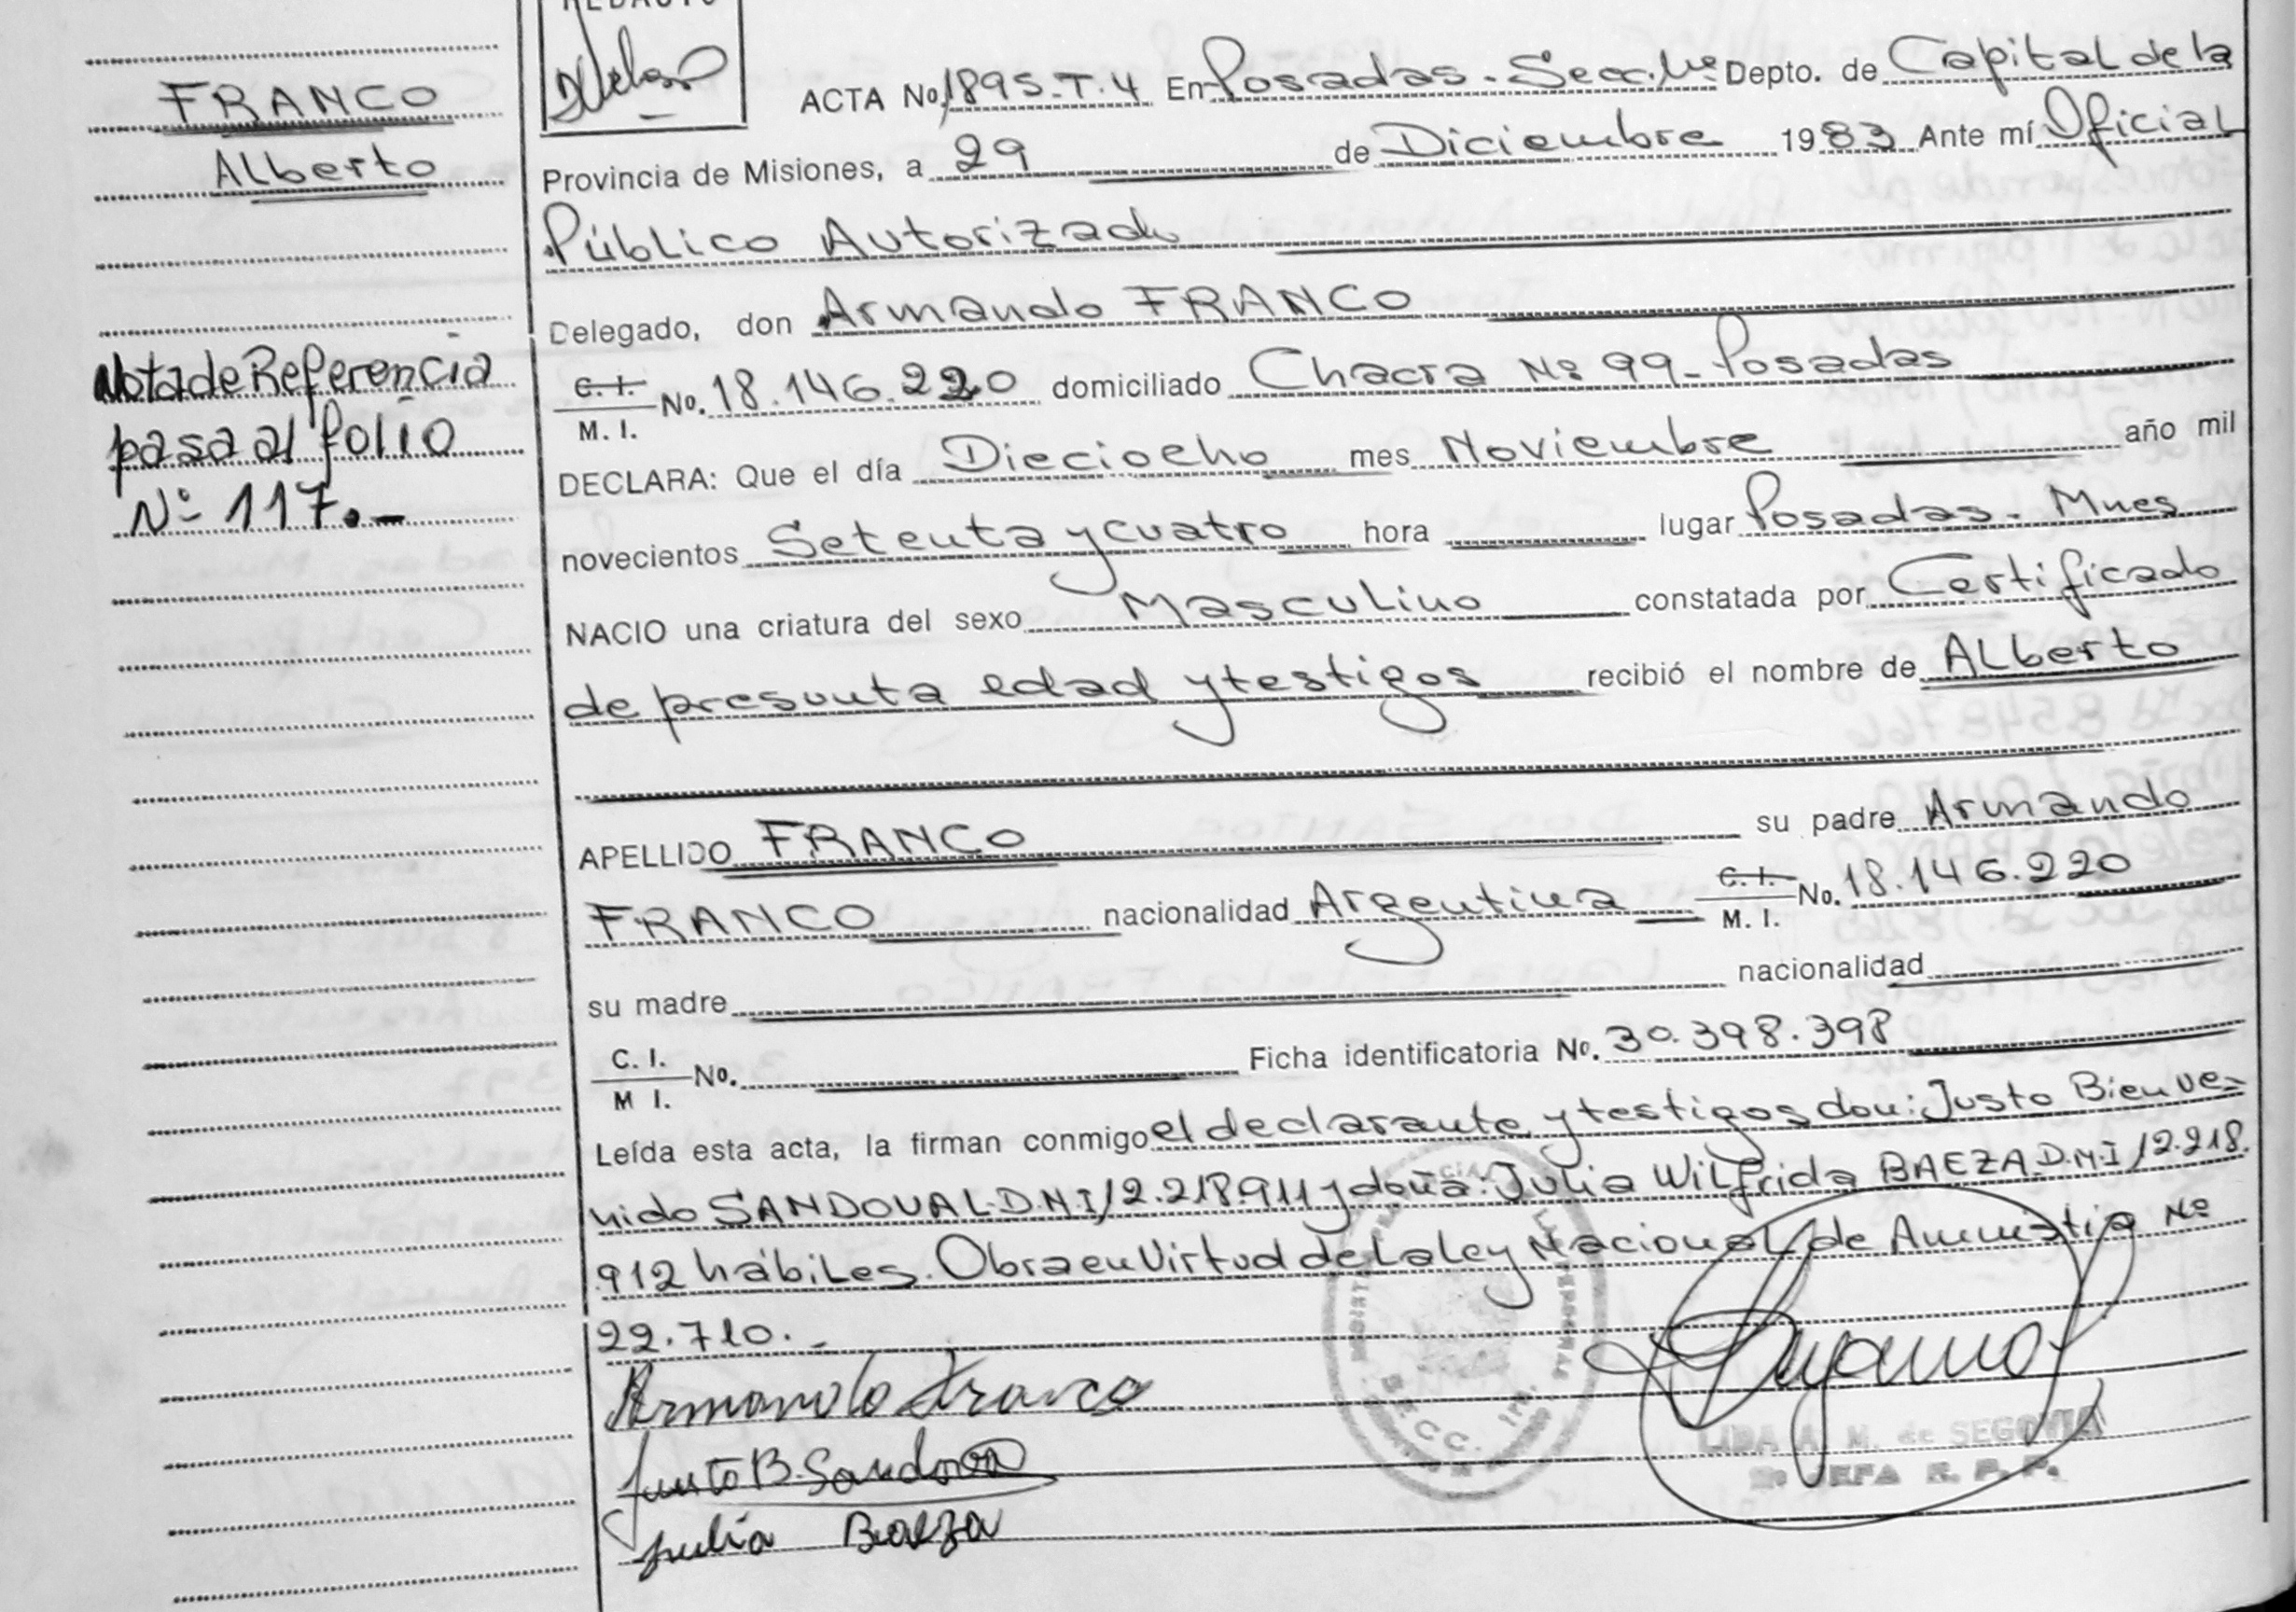 REDACTO
FRANCO
Alberto
Nota de Referencia
pasa al folio
Nº 117.-
ACTA No. 1895-T.4 En Posadas. Secc. 1ª Depto. de Capital de la
Provincia de Misiones, a 29 de Diciembre 1983 Ante mí Oficial
Público Autorizado
Delegado, don Armando FRANCO
C. I.
M. I. No. 18.146.220 domiciliado Chacra Nº 99 - Posadas
DECLARA: Que el día Dieciocho mes Noviembre año mil
novecientos Setenta y cuatro hora lugar Posadas - Mnes
NACIO una criatura del sexo Masculino constatada por Certificado
de presunta edad y testigos recibió el nombre de Alberto
APELLIDO FRANCO su padre Armando
FRANCO nacionalidad Argentina C. I. M. I. No. 18.146.220
su madre nacionalidad
C. I.
M I. No. Ficha identificatoria No. 30.398.398
Leída esta acta, la firman conmigo el declarante y testigos don: Justo Bienve-
nido SANDOVAL D.N.I 12.218.911 y doña: Julia Wilfrida BAEZA D.N.I 12.218.
912 hábiles. Obra en Virtud de La Ley Nacional de Amnistia Nº
22.710.-
Armando Franco
Justo B. Sandoval
Julia Baeza
SECC. 1ra.
LIDA A. M. de SEGOVIA
JEFA R. P. P.